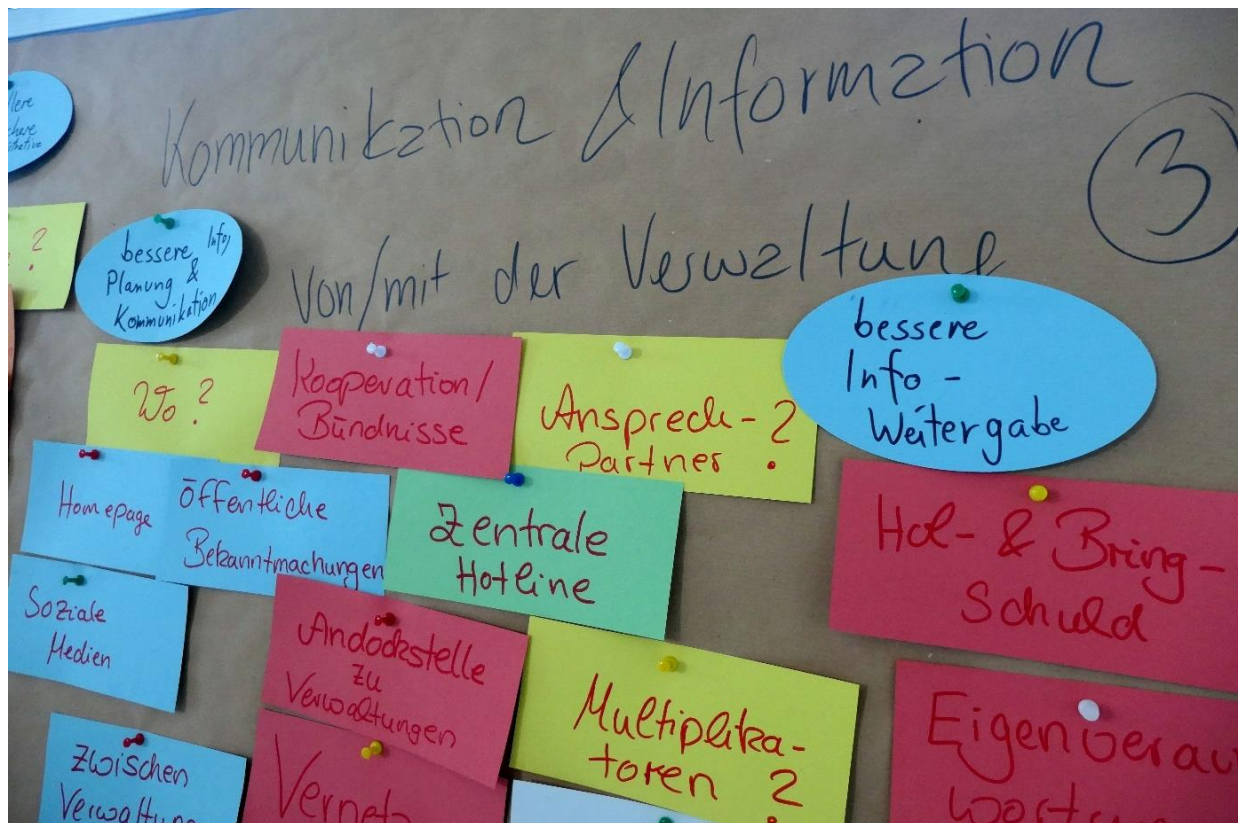 Kommunikation & Information
3
von/mit der Verwaltung
?
bessere Info,
Planung &
Kommunikation
Wo?
Kooperation/
Bündnisse
Ansprech-
Partner ?
bessere
Info-
Weitergabe
Homepage
öffentliche
Bekanntmachungen
Zentrale
Hotline
Hol- & Bring-
Schuld
Soziale
Medien
Andockstelle
zu
Verwaltungen
Multiplika-
toren ?
Zwischen
Verwaltung
Vernetz
Eigenverant
wortung